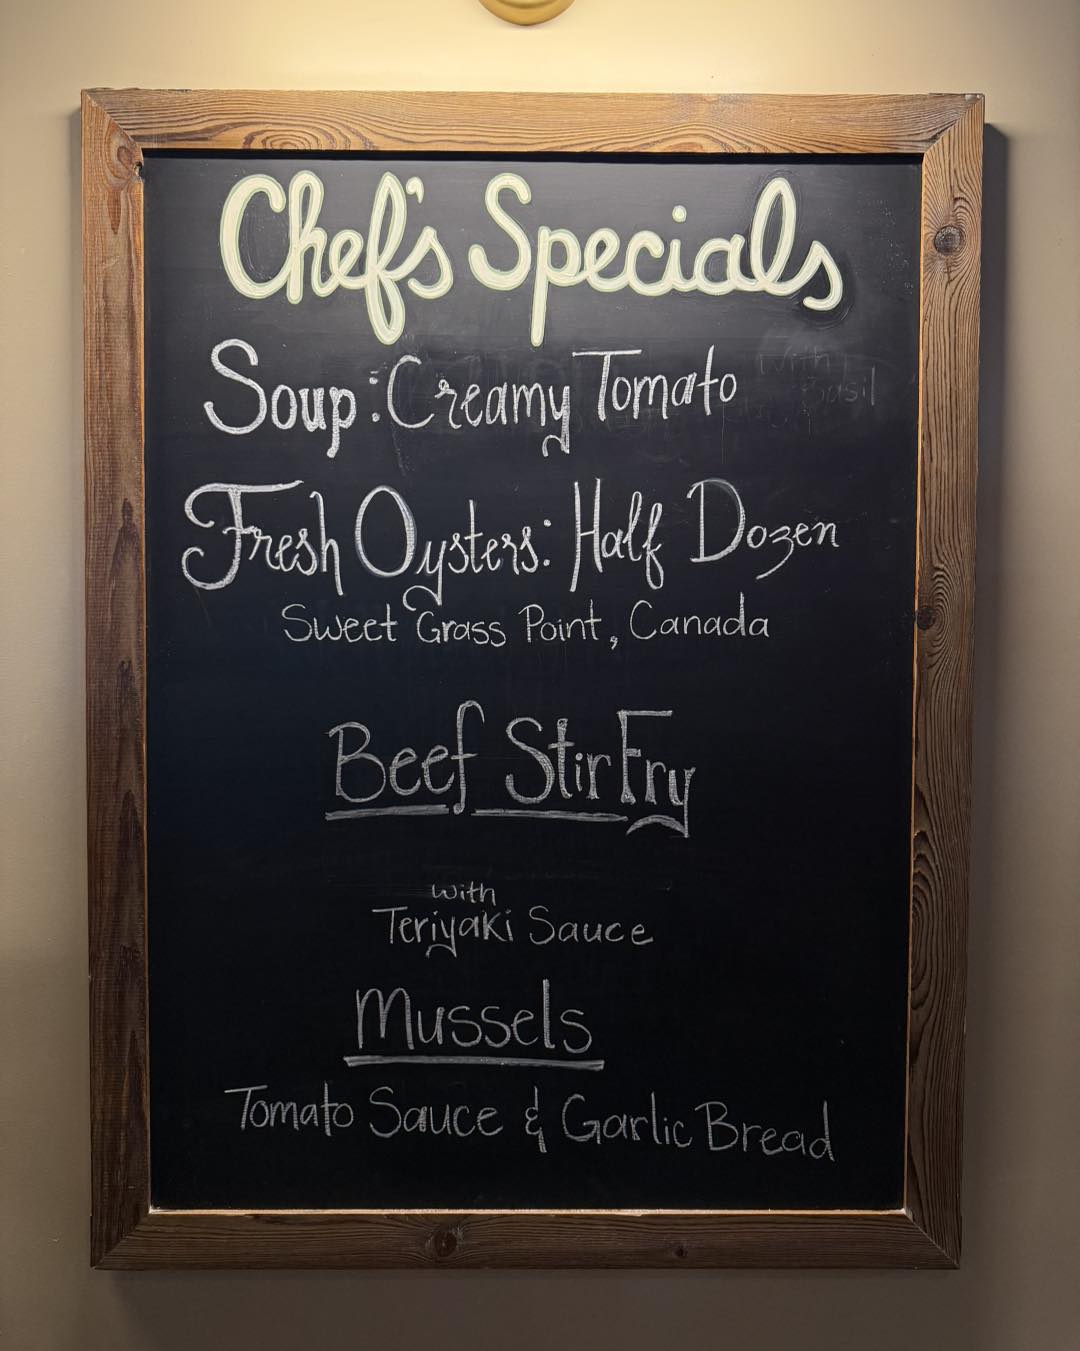 Chef's Specials
Soup: Creamy Tomato
with
Basil
Fresh Oysters: Half Dozen
Sweet Grass Point, Canada
Beef Stir Fry
with
Teriyaki Sauce
Mussels
Tomato Sauce & Garlic Bread